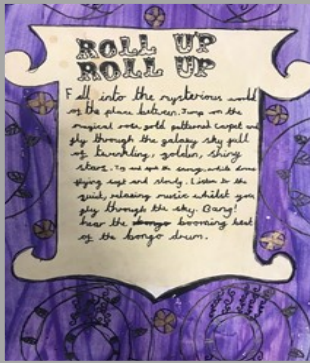 ROLL UP
ROLL UP
Fall into the mysterious world
of the place between. Jump on the
magical rose gold patterned carpet and
fly through the galaxy sky full
of twinkling, golden, shiny
stars. Try and not be scared, while
flying high and slowly. Listen to the
quiet, relaxing music whilst you
fly through the sky. Bang!
hear the booming beat
of the bongo drum.